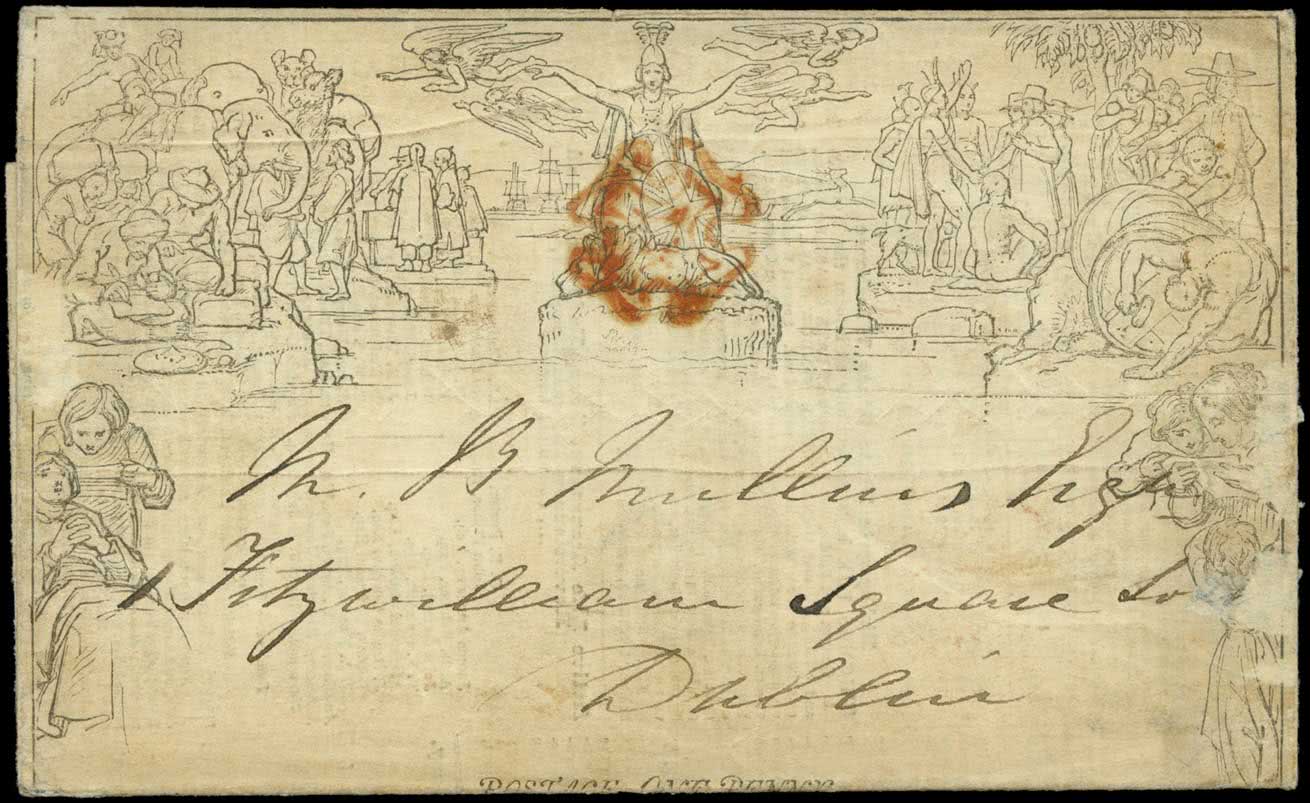 M. B Mullins Esq
1 Fitzwilliam Square So
Dublin
POSTAGE ONE PENNY